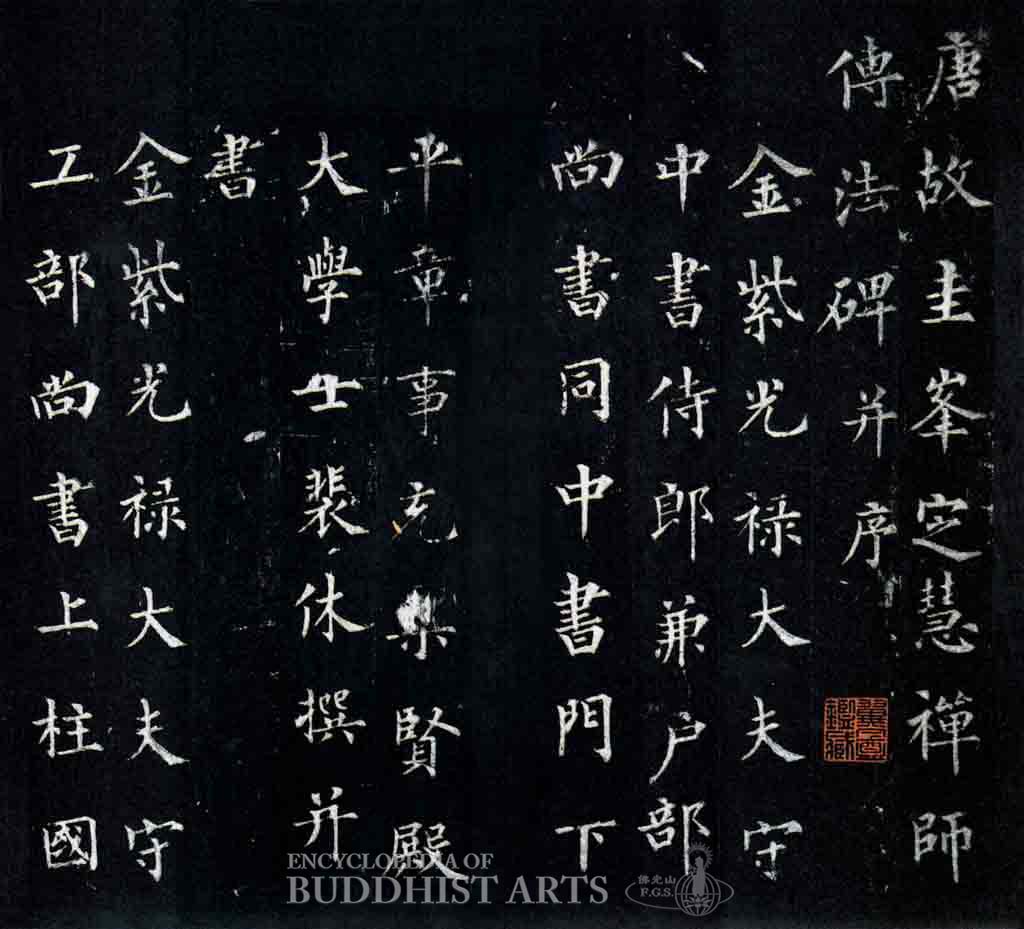 唐故圭峯定慧禪師
傳法碑并序
金紫光祿大夫守
中書侍郎兼户部
尚書同中書門下
平章事充集賢殿
大學士裴休撰并
書
金紫光祿大夫守
工部尚書上柱國
ENCYCLOPEDIA OF
BUDDHIST ARTS
佛光山
F.G.S.